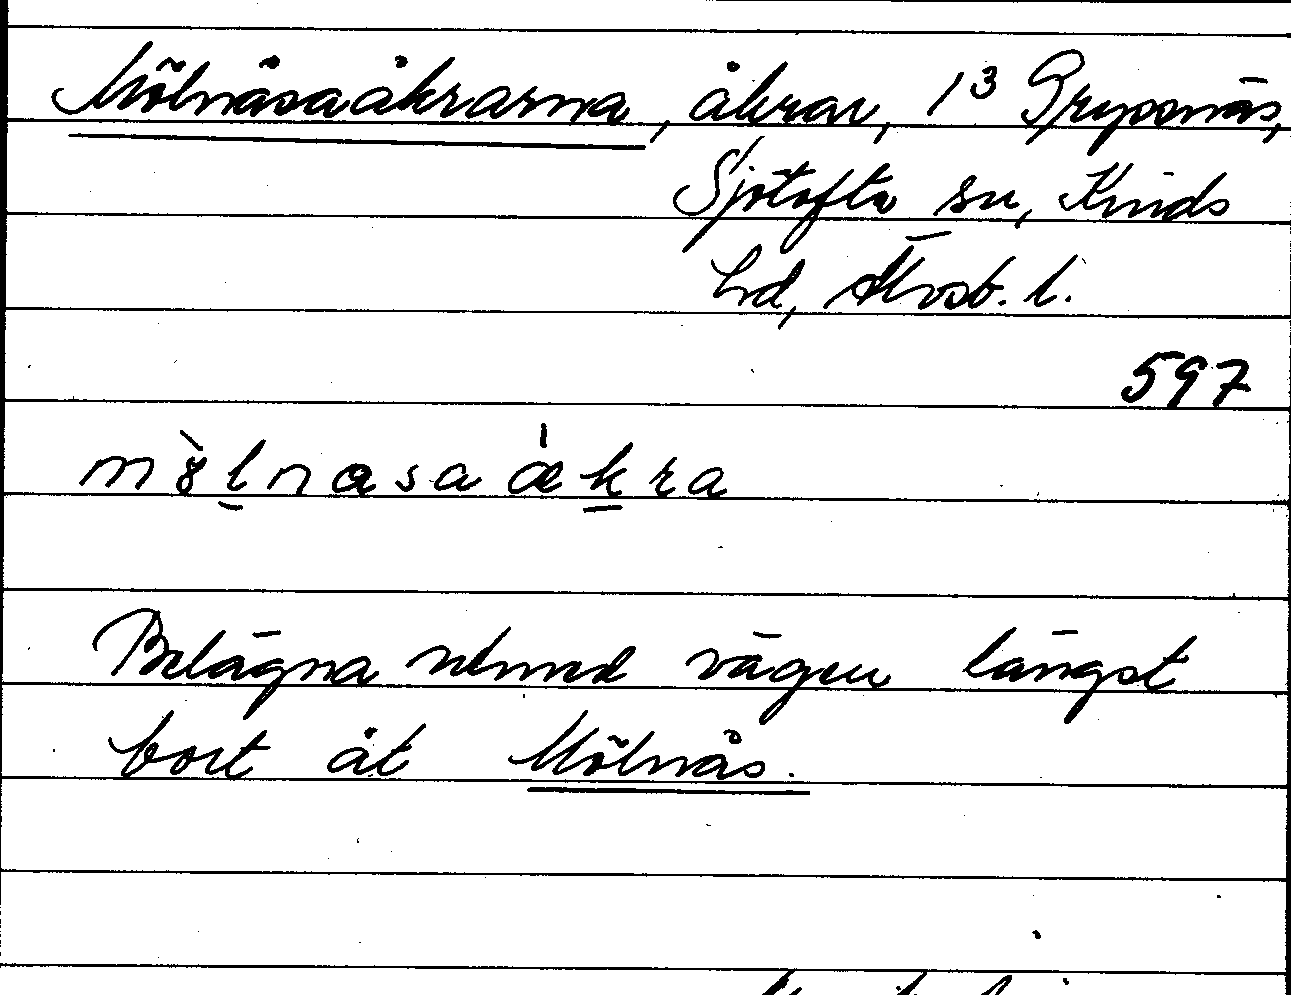 Mölnåsaåkrarna, åkrar, 1³ Grypsnäs,
Sjötofta sn, Kinds
hd, Älvsb. l.
597
mölnasaåkra
Belägna utmed vägen längst
bort åt Mölnås.